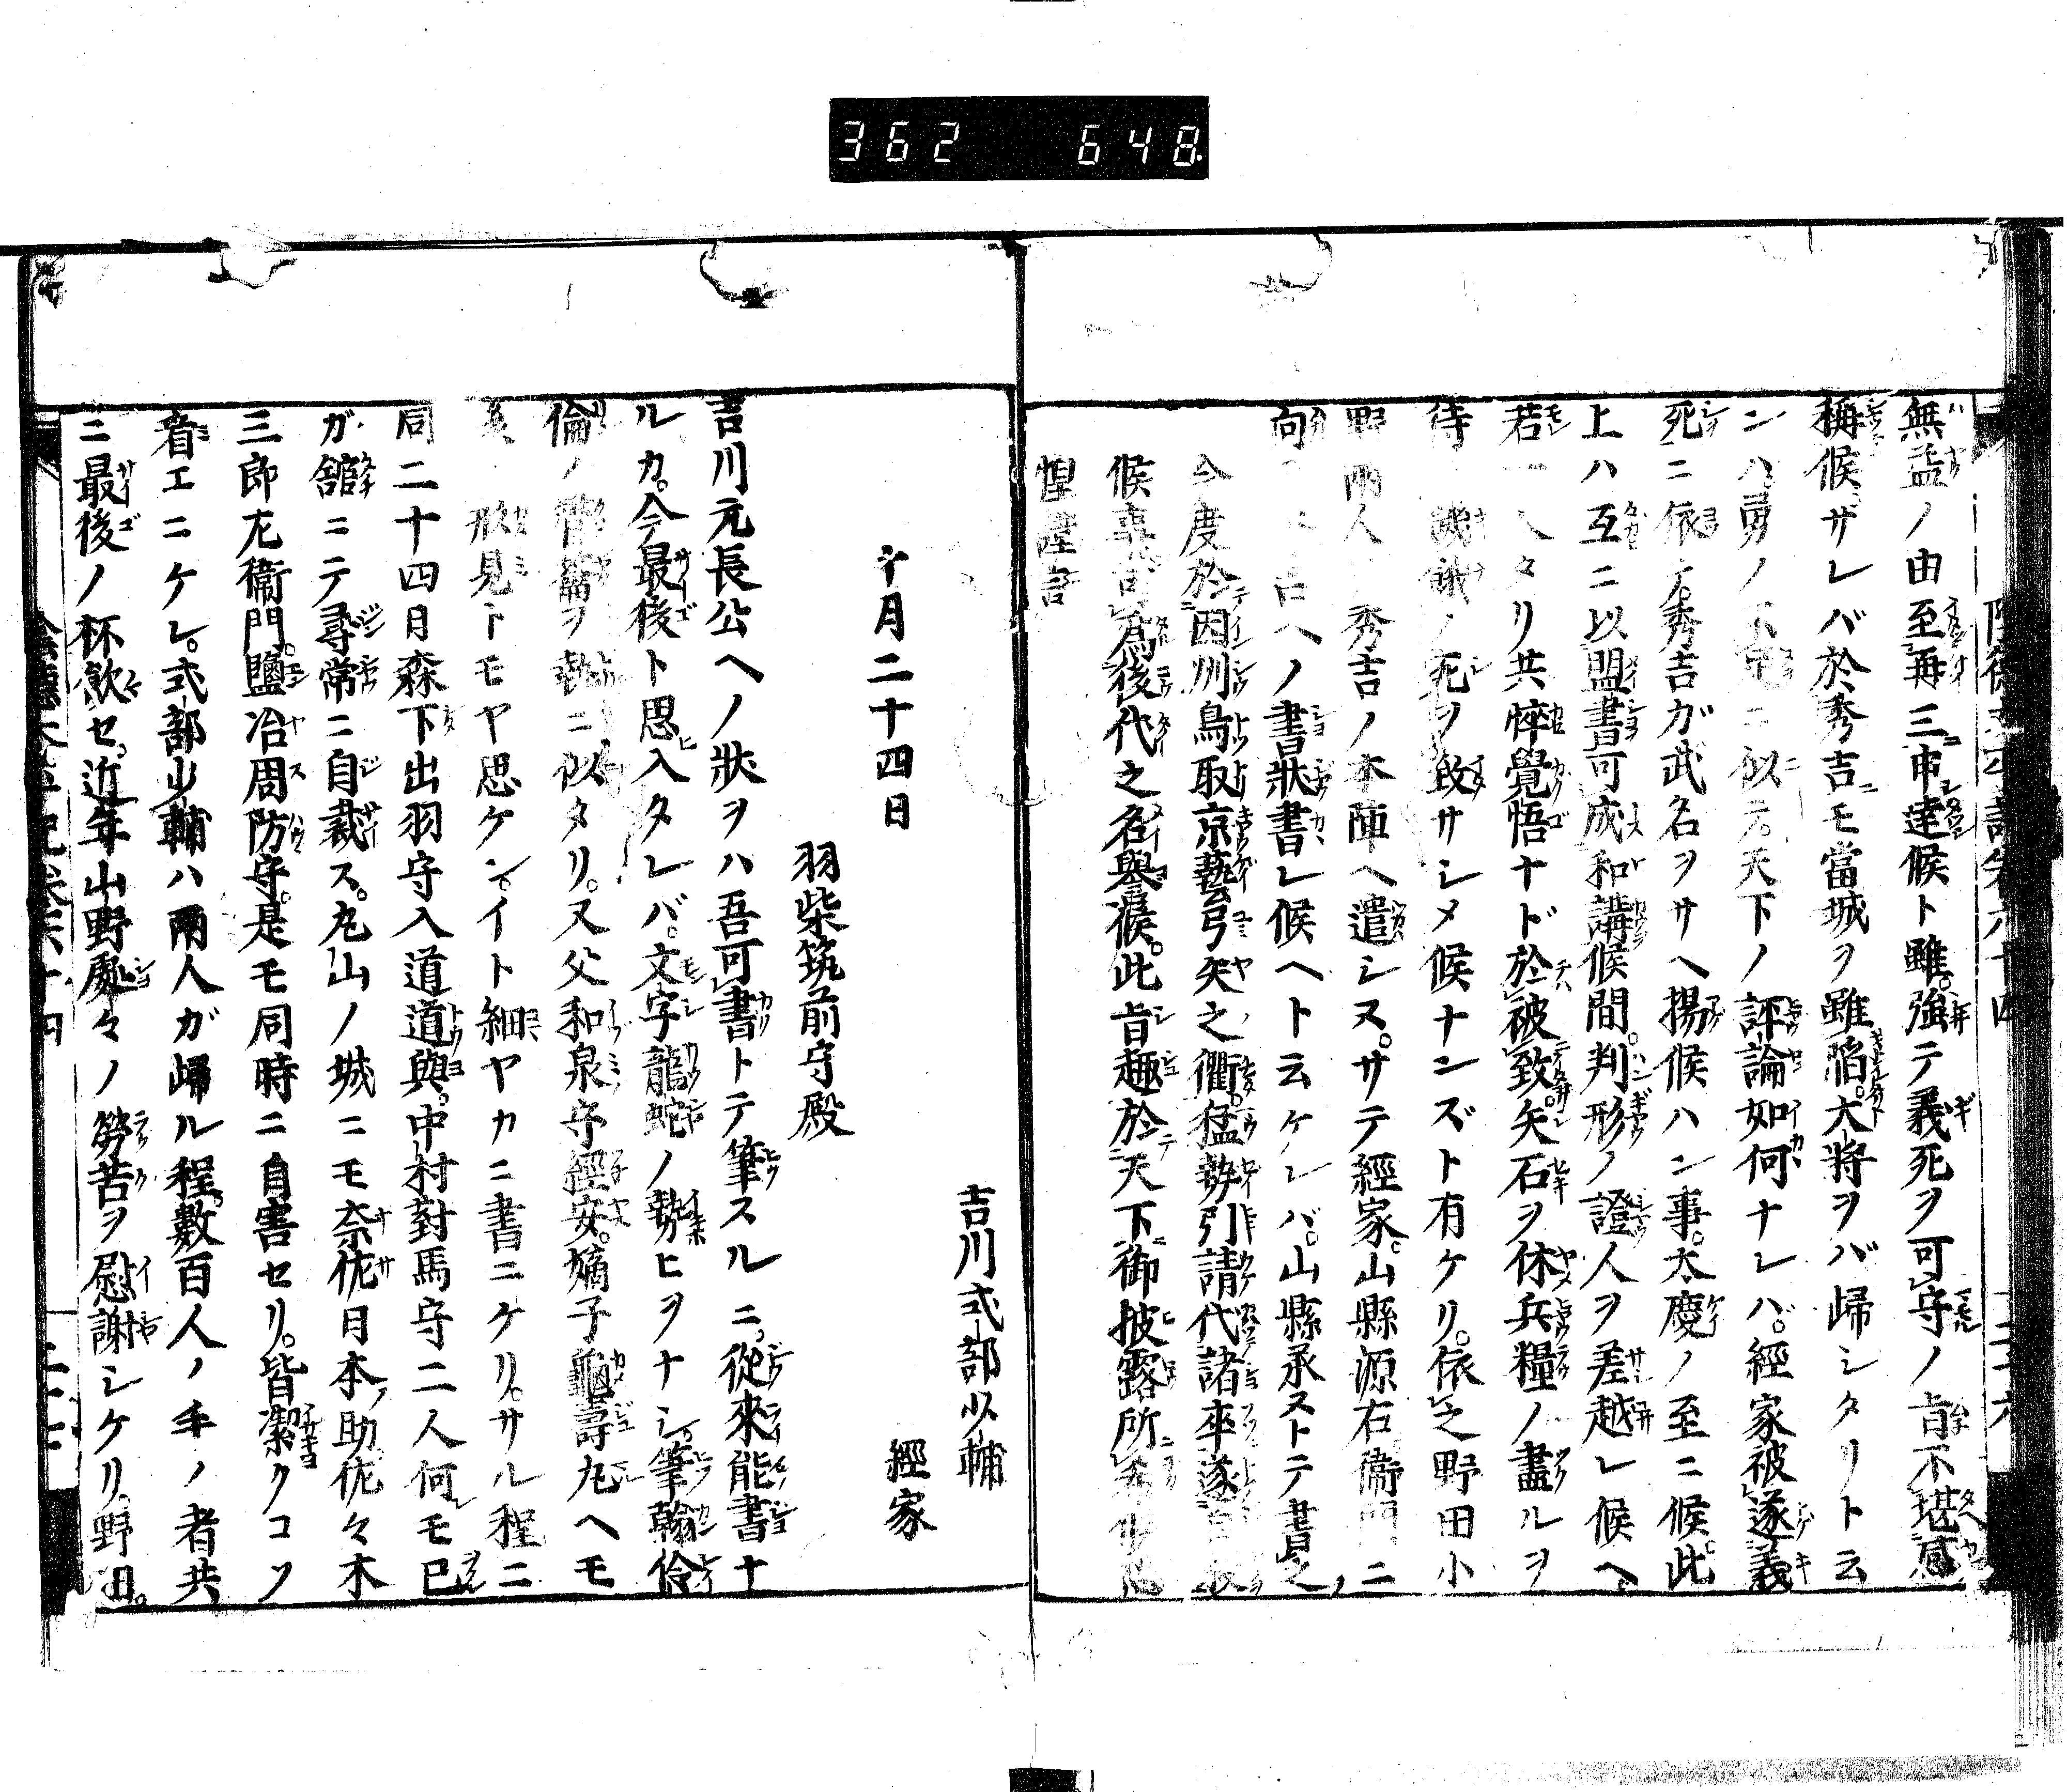 362 648
無益ノ由至再三申達候ト雖。強テ義死ヲ可守ノ旨不堪感
稱候。ザレバ於秀吉モ當城ヲ雖陷。大將ヲバ歸シタリト云
ンハ勇ノ不足ニ似元。天下ノ評論如何ナレバ。經家被遂義
死ニ依テ。秀吉ガ武名ヲサヘ揚候ハン事。太慶ノ至ニ候。此
上ハ互ニ以盟書可成和講候間。判形ノ證人ヲ差越レ候ヘ。
若 入タリ共悴覺悟ナド於被致矢。石ヲ休兵糧ノ盡ルヲ
待 饑餓ノ死ヲ致サシメ候ナンズト有ケリ。依之野田小
野兩人 秀吉ノ本陣ヘ遣シヌ。サテ經家。山縣源右衞門ニ
向 古ヘノ書狀書レ候ヘト云ケレバ。山縣承ストテ書之
今度於因州鳥取京藝弓矢之衢。猛勢引請代諸卒遂自
候事 爲後代之名譽候。此旨趣於天下御披露所
惶謹言
吉川式部少輔
經家
十月二十四日
羽柴筑前守殿
吉川元長公ヘノ狀ヲハ吾可書トテ筆スルニ。從來能書ナ
ルカ。今最後ト思入タレバ。文字龍蛇ノ勢ヒヲナシ。筆翰伶
倫ノ管籥ヲ執ニ似タリ。又父和泉守經安。嫡子龜壽丸ヘモ
形見トモヤ思ケン。イト細ヤカニ書ニケリ。サル程ニ
同二十四日森下出羽守入道道與。中村對馬守二人何モ已
ガ舘ニテ尋常ニ自裁ス。丸山ノ城ニモ奈佐日本ノ助佐々木
三郎左衞門。鹽冶周防守。是モ同時ニ自害セリ。皆潔クコソ
看エニケレ。式部少輔ハ兩人ガ歸ル程。數百人ノ手ノ者共
ニ最後ノ杯飮セ。近年山野處々ノ勞苦ヲ慰謝シケリ。野田。